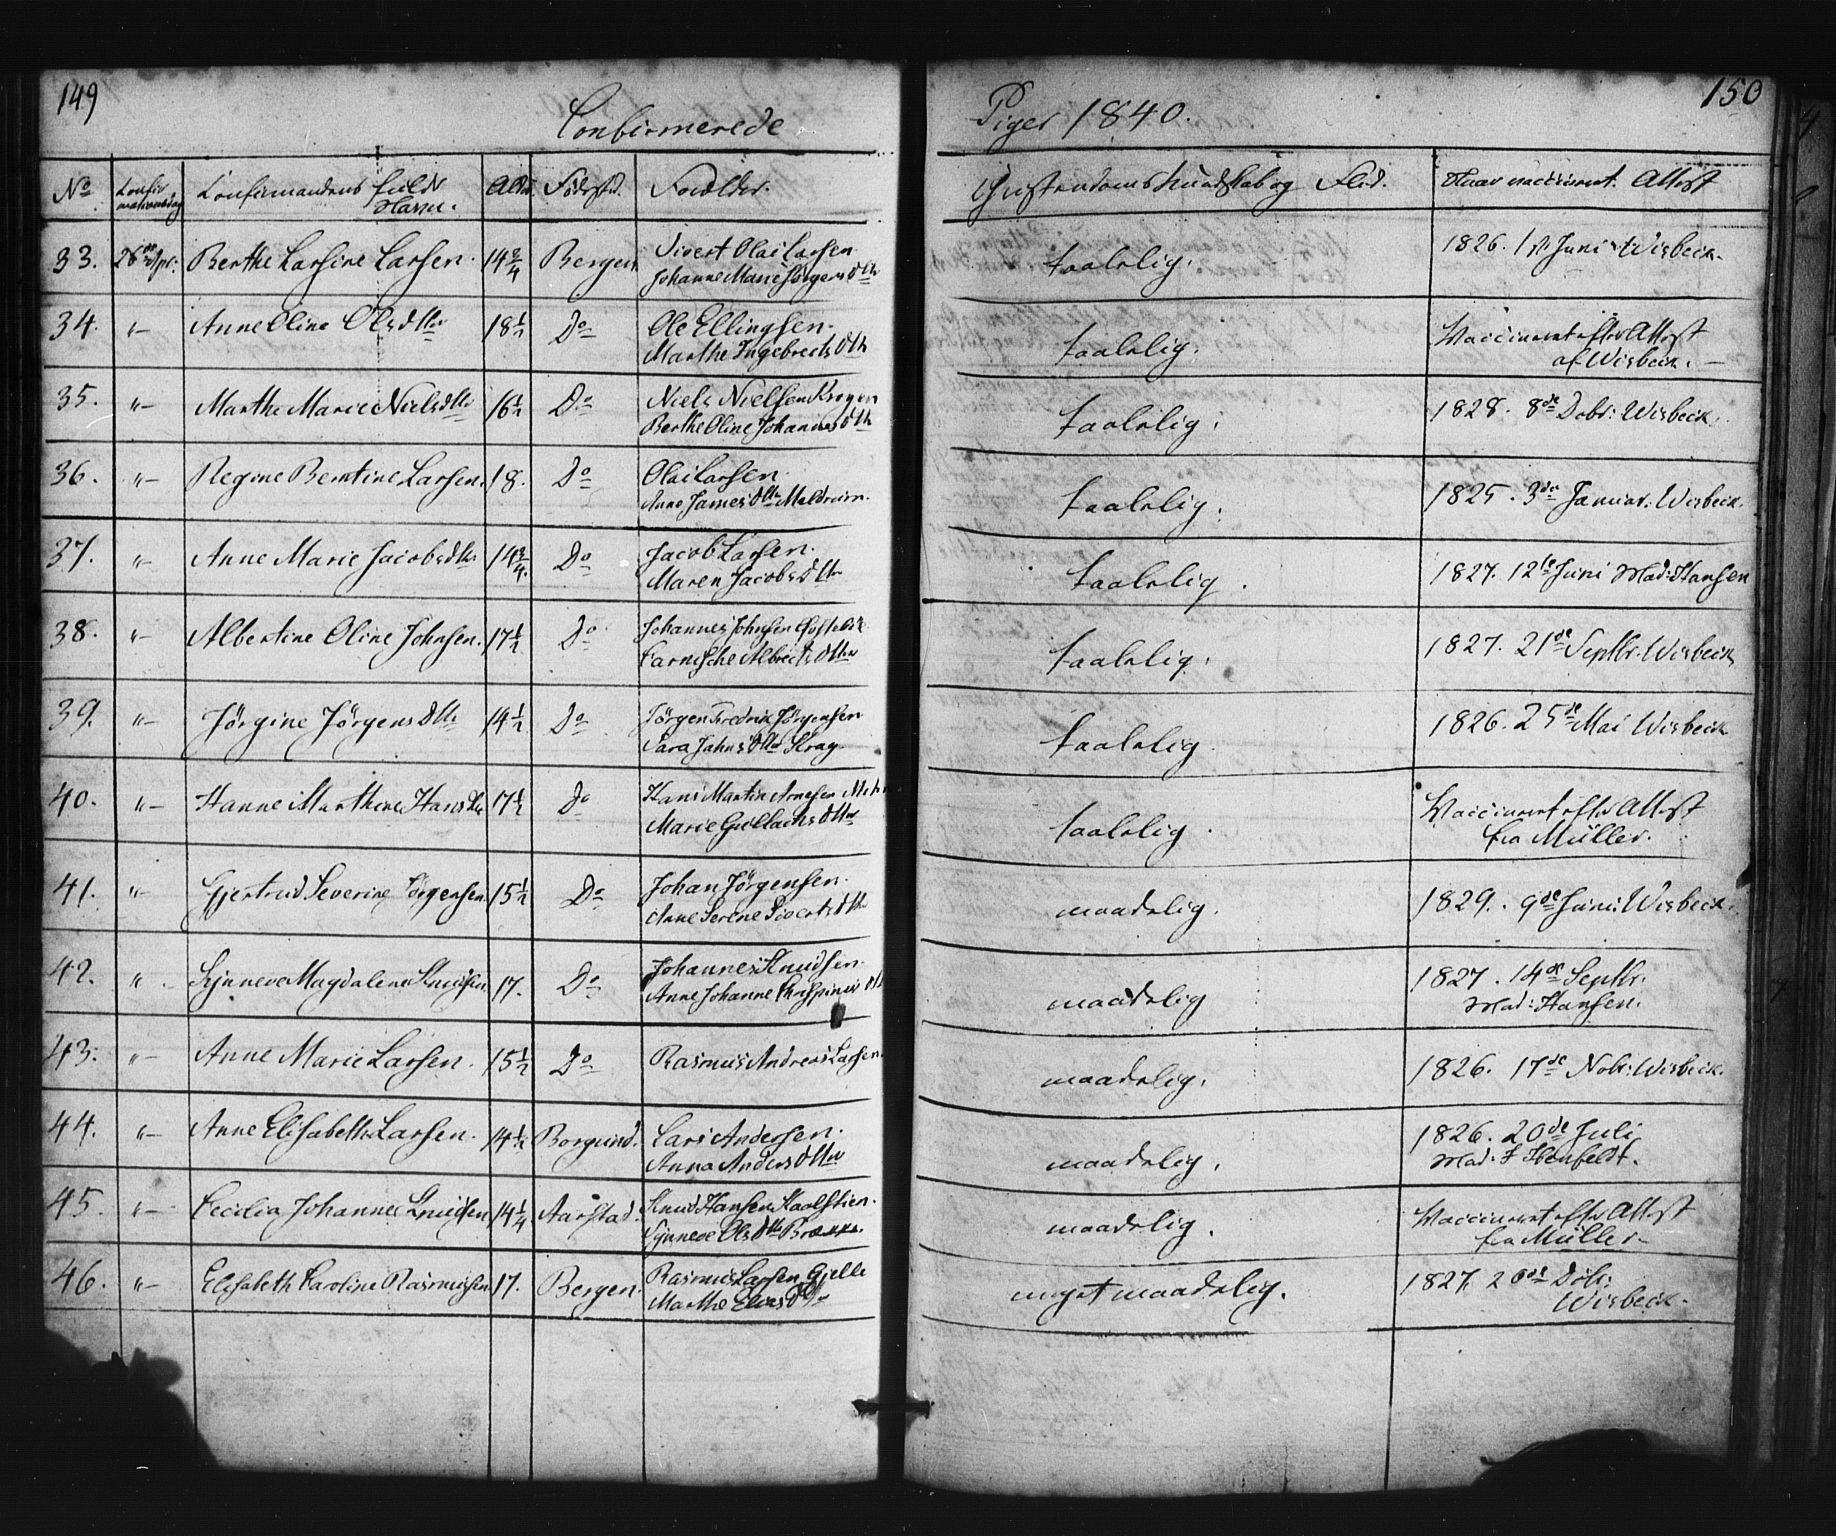 149
Confirmerede
No Confirmationsdag Confirmandens fulde Navn. Alder. Fødested. Forældre.
33. 26de Apr. Berthe Larsine Larsen. 14 3/4 Bergen Sivert Olai Larsen
Johanne Marie Jørgensdtr
34. "- Anne Oline Olsdtter 18 1/2 Do Ole Ellingsen.
Marthe Ingebretsdtr
35. "- Marthe Marie Nielsdtt 16 1/2 Do Niels Nielsen Krogen
Berthe Oline Johannesdtr
36. "- Regine Berntine Larsen. 18. Do Olai Larsen
Anne Jamesdtr Meldrum.
37. "- Anne Marie Jacobsdtr. 14 3/4. Do Jacob Larsen.
Maren Jacobsdtr
38. "- Albertine Oline Johnsen. 17 1/2 Do Johannes Johnsen
Albrectsdtter
39. "- Jørgine Jørgensdtt 14 1/2 Do Jørgen Fredrik Jørgensen
Sara Jahnsdtter Krag.
40. "- Hanne Marthine Hansdtr 17 1/2 Do Hans Martin Arnesen
Marie Gullachsdtter
41. "- Gjertrud Severine Jørgensen 15 1/2 Do Johan Jørgensen.
Anne Serene Sivertsdtr
42. " Synneve Magdalene Knudsen 17. Do Johannes Knudsen.
Anne Johanne
43. "- Anne Marie Larsen. 15 1/2 Do Rasmus Andreas Larsen
44. "- Anne Elisabeth Larsen. 14 1/2 Borgund. Lars Andersen.
Anna Andersdtter
45. "- Cecilia Johanne Knudsen 14 1/4 Aarstad. Knud Hansen
Synneve Olsdtr
46. "- Elisabeth Karoline Rasmusen 17. Bergen. Rasmus Larsen Gjelle
Marthe Eliasdtr
150
Piger 1840.
Christendoms Kundskab og Flid. Naar vaccineret. Attest
taalelig. 1826. 1st Juni Wisbeck.
taalelig. Vaccineret efter Attest
af Wisbeck. -
taalelig. 1828. 8de Dcbr: Wisbeck.
taalelig. 1825. 3de Januar. Wisbeck.
taalelig. 1827. 12te Juni Mad: Hansen
taalelig. 1827. 21de Septbr. Wisbeck
taalelig 1826. 25de Mai Wisbeck
taalelig. Vaccineret efter Attest
fra Müller.
maadelig. 1829. 9de Juni: Wisbeck.
maadelig 1827. 14de Septbr.
Mad: Hansen.
maadelig. 1826. 17de Nobr: Wisbeck.
maadelig. 1826. 20de Juli
Mad:
maadelig. Vaccineret efter Attest
fra Müller
meget maadelig. 1827. 20de Dcbr.
Wisbeck.